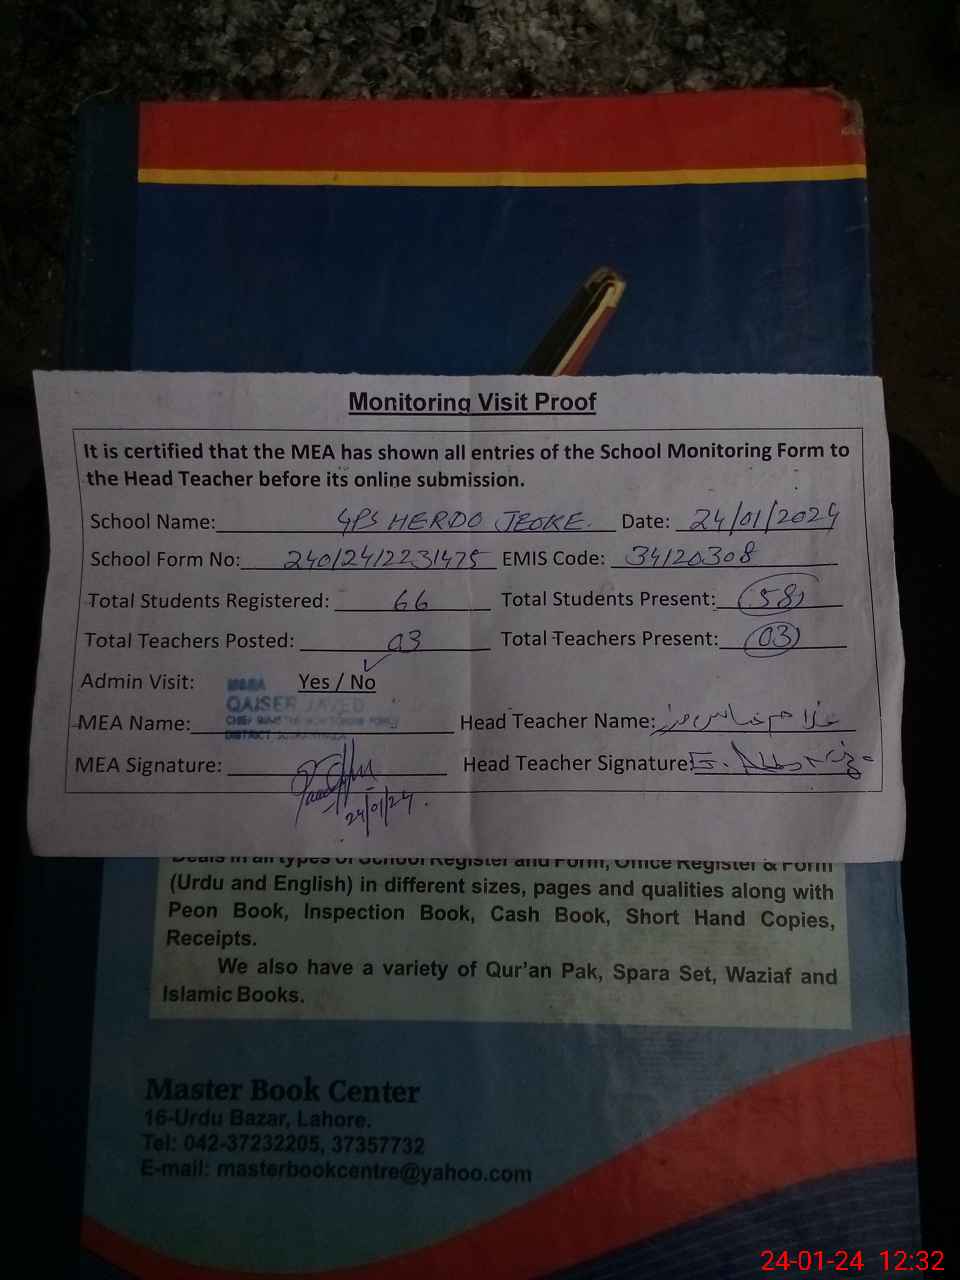 Monitoring Visit Proof
It is certified that the MEA has shown all entries of the School Monitoring Form to
the Head Teacher before its online submission.
School Name: GPS HERDO JEOKE. Date: 24/01/2024
School Form No: 24012412231475 EMIS Code: 34120308
Total Students Registered: 66 Total Students Present: 58
Total Teachers Posted: 03 Total Teachers Present: 03
Admin Visit: Yes / No
MEA
QAISER JAVED
CHIEF MINISTER MONITORING FORCE
DISTRICT
MEA Name: Head Teacher Name: غلام عباس
MEA Signature: Head Teacher Signature: G. Abbas
24/01/24.
Deals in all types of School Register and Form, Office Register & Form
(Urdu and English) in different sizes, pages and qualities along with
Peon Book, Inspection Book, Cash Book, Short Hand Copies,
Receipts.
We also have a variety of Qur'an Pak, Spara Set, Waziaf and
Islamic Books.
Master Book Center
16-Urdu Bazar, Lahore.
Tel: 042-37232205, 37357732
E-mail: masterbookcentre@yahoo.com
24-01-24 12:32